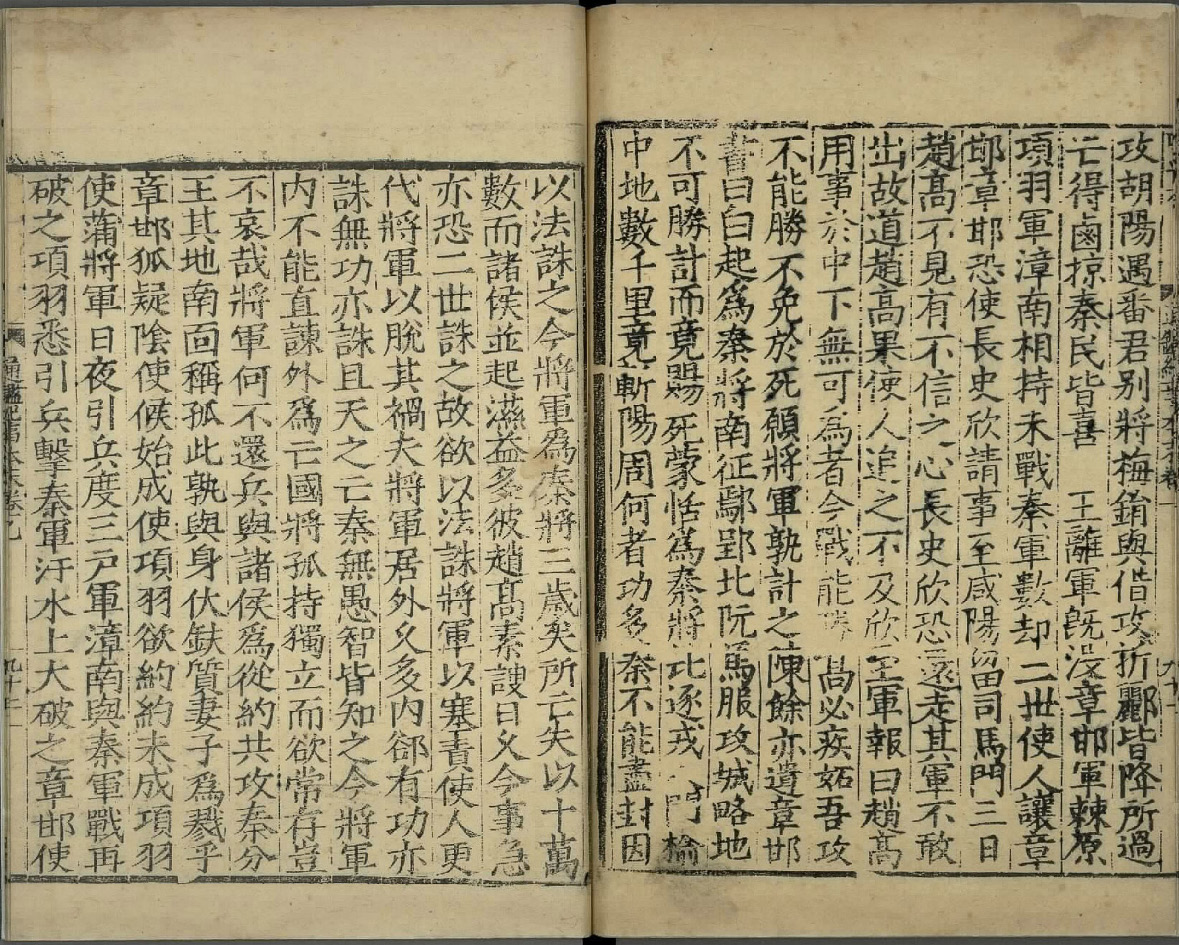 攻胡陽遇番君别將梅鋗與偕攻折酈皆降所過
亡得鹵掠秦民皆喜　王離軍既没章邯軍棘原
項羽軍漳南相持未戰秦軍數却二世使人讓章
邯章邯恐使長史欣請事至咸陽留司馬門三日
趙高不見有不信之心長史欣恐還走其軍不敢
出故道趙高果使人追之不及欣至軍報曰趙高
用事於中下無可爲者今戰能勝高必疾妬吾攻
不能勝不免於死願將軍孰計之陳餘亦遺章邯
書曰白起爲秦將南征鄢郢北阬馬服攻城略地
不可勝計而竟賜死蒙恬爲秦將北逐戎門榆
中地數千里竟斬陽周何者功多秦不能盡封因
以法誅之今將軍爲秦將三歲矣所亡失以十萬
數而諸侯並起滋益多彼趙高素諛日久今事急
亦恐二世誅之故欲以法誅將軍以塞責使人更
代將軍以脫其禍夫將軍居外久多内郤有功亦
誅無功亦誅且天之亡秦無愚智皆知之今將軍
内不能直諫外爲亡國將孤持獨立而欲常存豈
不哀哉將軍何不還兵與諸侯爲從約共攻秦分
王其地南面稱孤此孰與身伏鈇質妻子爲戮乎
章邯狐疑陰使候始成使項羽欲約約未成項羽
使蒲將軍日夜引兵度三戸軍漳南與秦軍戰再
破之項羽悉引兵擊秦軍汙水上大破之章邯使
通鑑紀事本末卷九